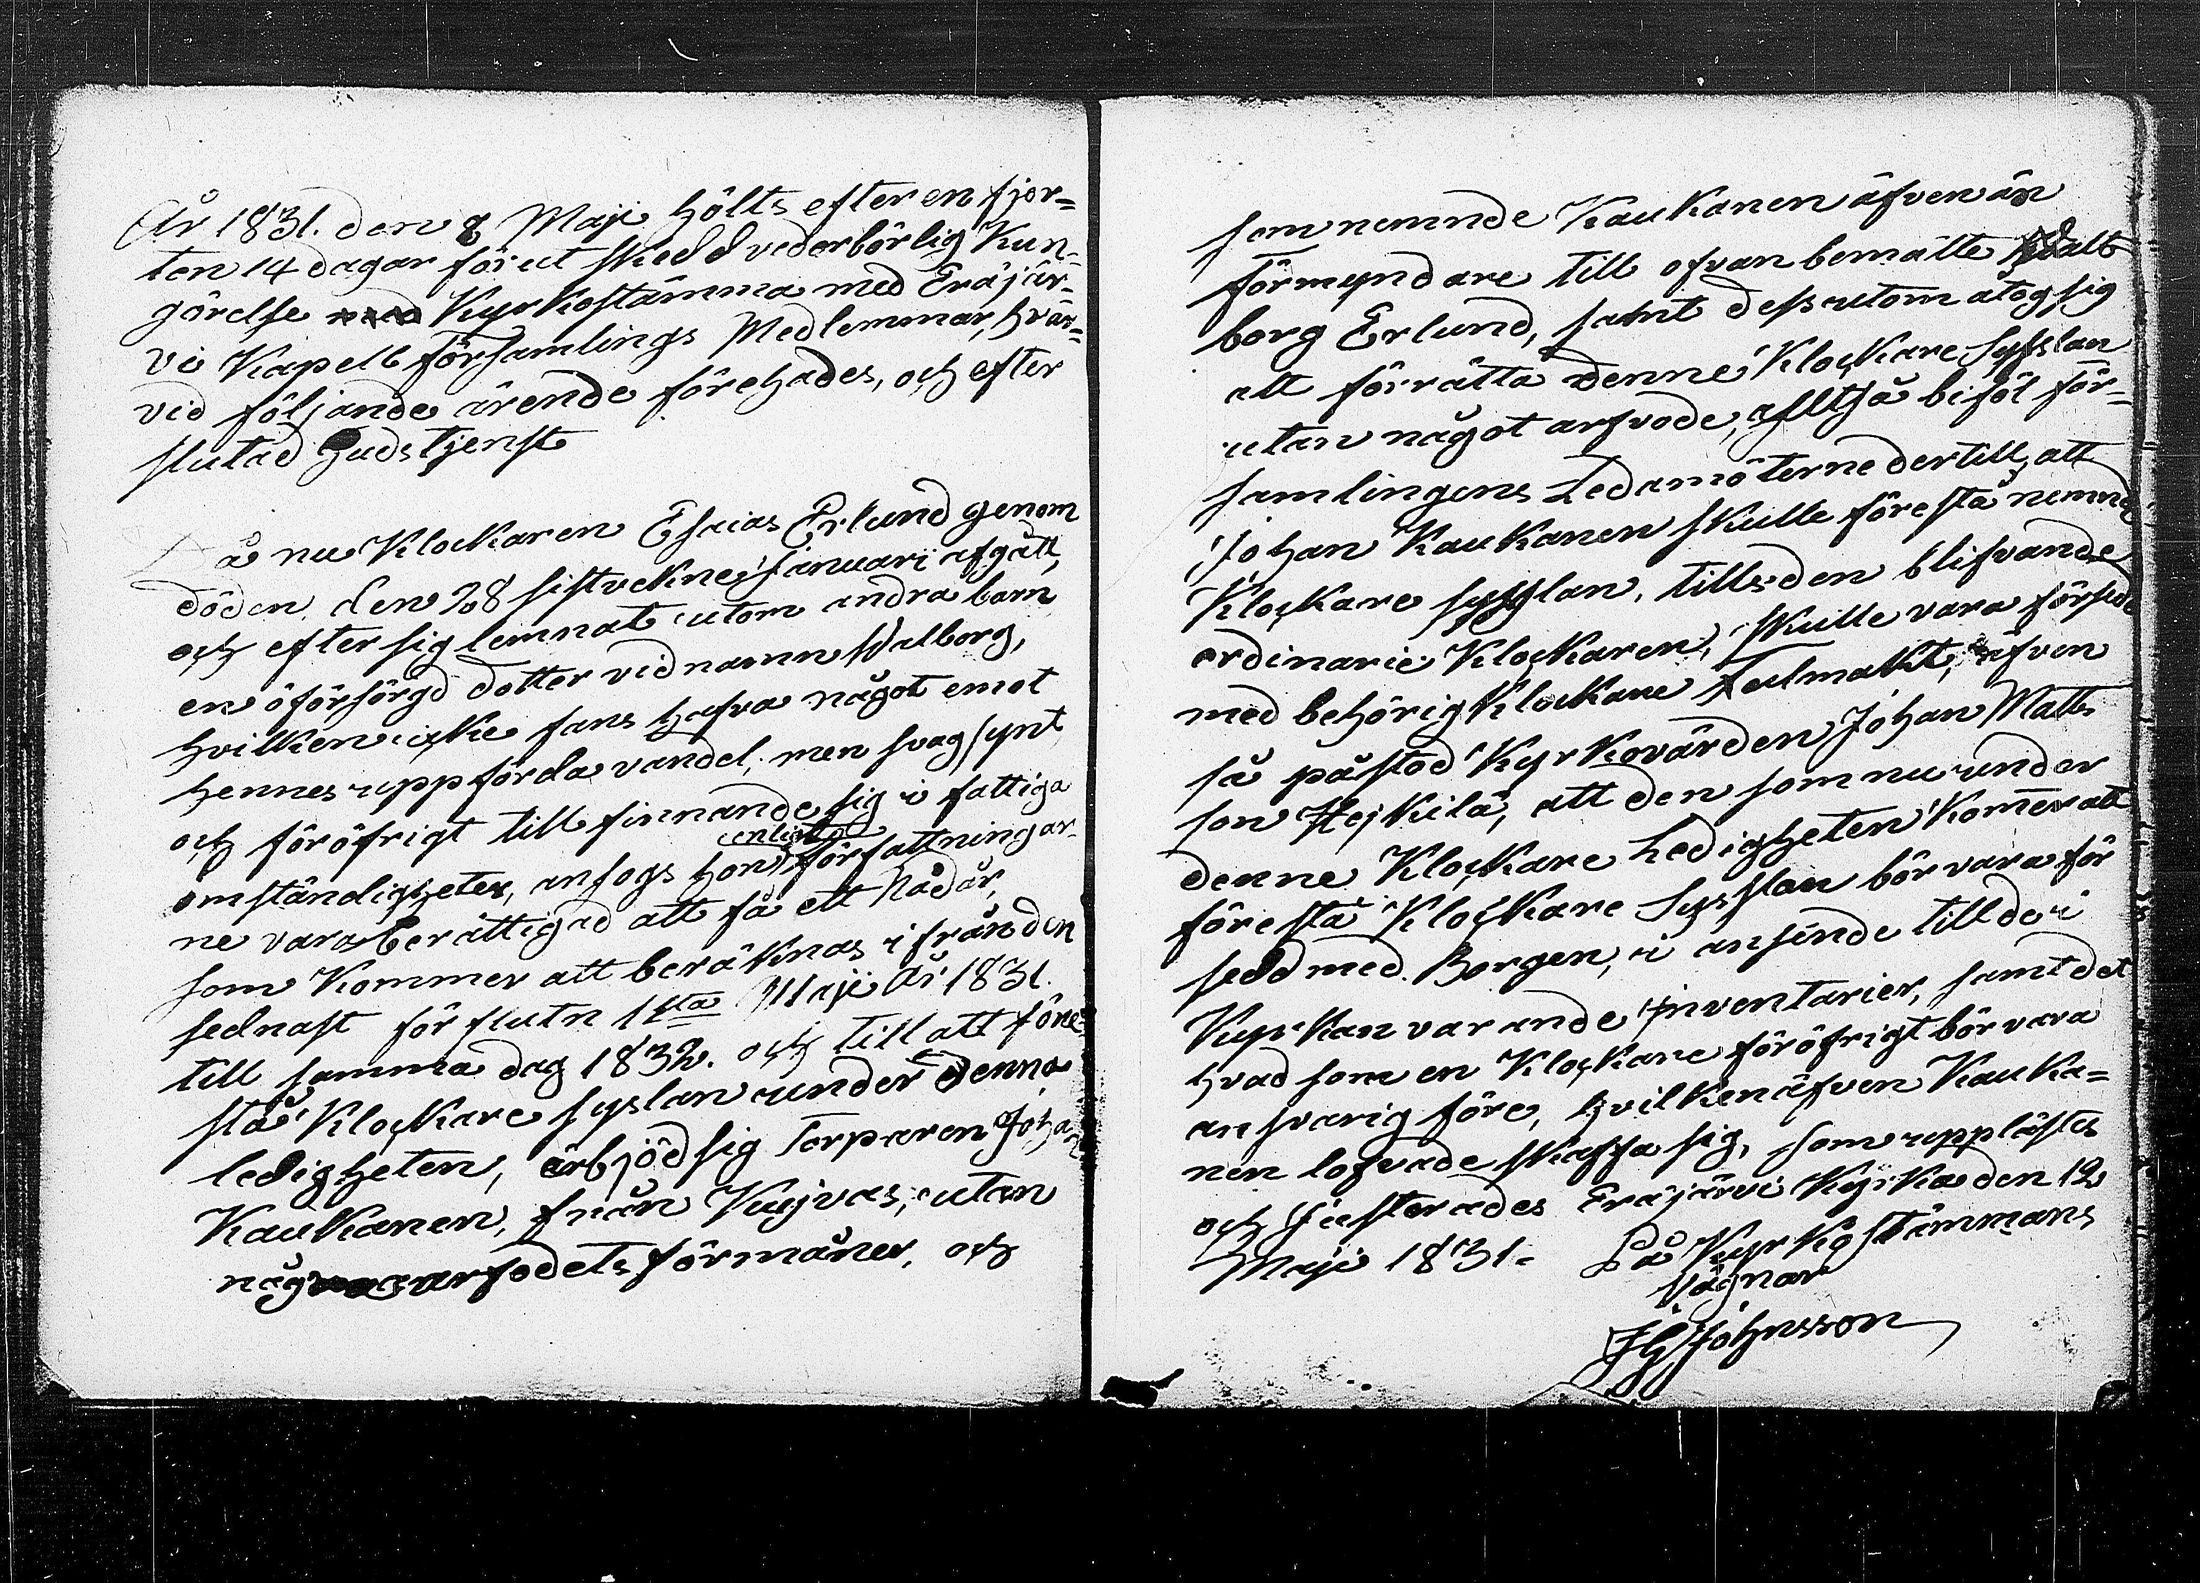 År 1831. den 8 Maji hölts efter en fjor=
ton 14 dagar förut skedd vederbörlig Kun=
görelse Kyrkostämma med Eräjär=
vi Kapell Församlings Medlemmar, hvar=
vid följande ärende förehades, och efter
slutad Gudstjenst
Då nu Klockaren Esaias Erlund genom
döden den 28 sistvekne Januari afgått,
och efter sig lemnat utom andra barn
en oförsörgd dotter vid namn Walborg,
hvilken icke fans hafva något emot
hennes uppförda vandel, men svagsynt
och föröfrigt till finnande sig i fattiga
omständigheter, ansogs hon enligt författningar=
ne vara berättigad att få ett Nådår,
som Kommer att beräknas ifrån den
sednast förflutn 1sta Maji År 1831.
till samma dag 1832. och till att före=
stå Klockare syslan under denna
ledigheten, ärbjöd sig Torparen Joha
Kaukanen, från Kuijvas, utan
någ arfodets förmåner, och
som nemnde Kaukanen äfven är
förmyndare till ofvanbemälte Wall
borg Erlund, samt dessutom åtog sig
att förrätta denne Klockare Sysslan
utan något arfvode, Alltså biföl för=
samlingens Ledamöterne dertill, att
Johan Kaukanen skulle förestå nemnd
Klockare sysslan, tills den blifvande
ordinarie Klockaren, skulle vara försedd
med behörig Klockare Fulmakt, äfven
så påstod Kyrkovärden Johan Matts
son Hejkilä, att den som nu under
denne Klockare Ledigheten Kommer att
förestå Klockare Sysslan bör vara för
sedd med Borgen, i ansende till de i
Kyrkan varande inventarier, samt det
hvad som en Klockare föröfrigt bör vara
ansvarig före, hvilken äfven Kauka=
nen lofvade skaffa sig, som upplästes
och justerades Eräjärvi Kyrka den 12
Maji 1831. På Kyrkostämmans
vägnar
JG Johnsson